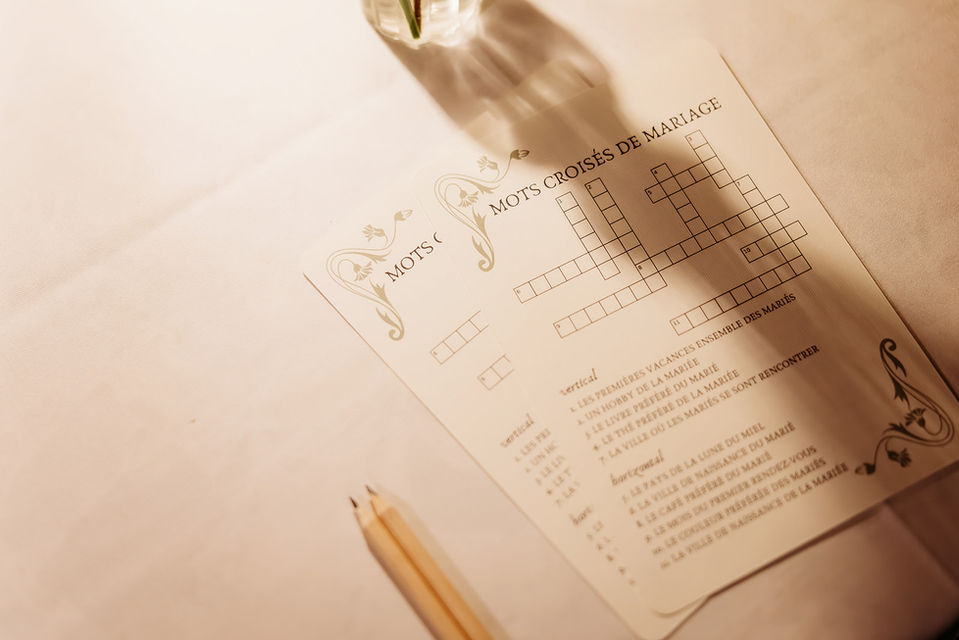 MOTS CROISÉS DE MARIAGE
vertical
1. LES PREMIÈRES VACANCES ENSEMBLE DES MARIÉS
2. UN HOBBY DE LA MARIÉE
3. LE LIVRE PRÉFÉRÉ DU MARIÉ
4. LE THÉ PRÉFÉRÉ DE LA MARIÉE
7. LA VILLE OÙ LES MARIÉS SE SONT RENCONTRER
horizontal
5. LE PAYS DE LA LUNE DU MIEL
6. LA VILLE DE NAISSANCE DU MARIÉ
8. LE CAFÉ PRÉFÉRÉ DU MARIÉ
9. LE MOIS DU PREMIER RENDEZ-VOUS
10. LE COULEUR PRÉFÉRÉE DES MARIÉS
11. LA VILLE DE NAISSANCE DE LA MARIÉE
MOTS
vertical